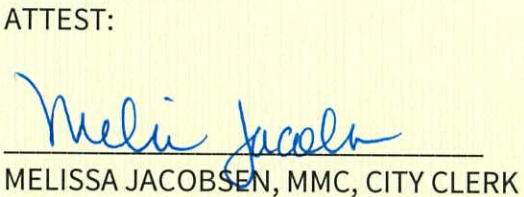 ATTEST:
Melissa Jacobsen
MELISSA JACOBSEN, MMC, CITY CLERK